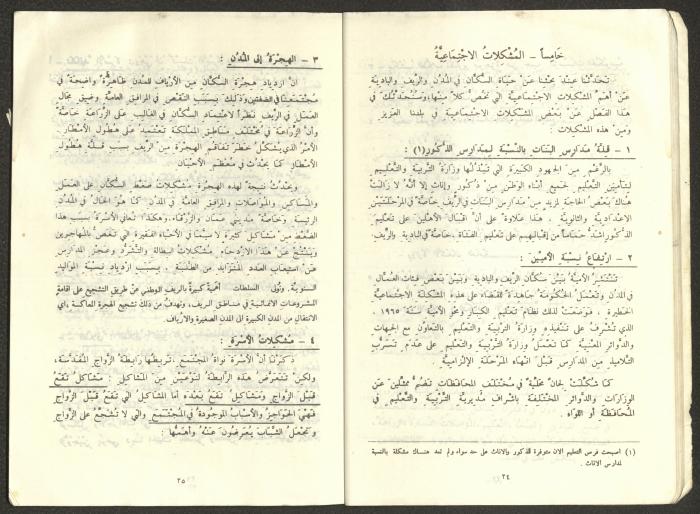 خامِساً – المُشْكِلاتُ الاجْتِماعِيَّةُ
تَحَدَّثْنا عِنْدَ بَحْثِنا عَنْ حَياةِ السُّكّانِ في المُدُنِ والرِّيفِ والبادِيَةِ
عَنْ أهَمِّ المُشْكِلاتِ الاجْتِماعِيَّةِ التي تَخُصُّ كلاًّ مِنْها، وسَنَتَحَدَّثُ في
هذا الفَصْلِ عَنْ بَعْضِ المُشْكِلاتِ الاجْتِماعِيَّةِ في بلَدِنا العَزيزِ
ومِنْ هذه المُشْكِلاتِ :
١ – قِلَّةُ مَدارِسِ البَناتِ بالنِّسْبَةِ لِمَدارِسِ الذُّكورِ(١) :
بالرَّغْمِ مِنَ الجُهودِ الكَبيرةِ التي تَبْذُلُها وزارَةُ التَّرْبِيَةِ والتَّعْليمِ
لِتَأمينِ التَّعْليمِ لِجَميعِ أبْناءِ الوَطَنِ مِنْ ذُكورٍ وإناثٍ إلا أنَّهُ لا زالَتْ
هُناكَ بَعْضُ الحاجَةِ لِمَزيدٍ مِنْ مَدارِسِ البَناتِ في الرِّيفِ خاصَّةً في المَرْحَلَتَيْنِ
الاعْدادِيَّةِ والثانَوِيَّةِ . هذا عِلاوَةً على أنَّ اقْبالَ الأهْلينَ على تَعْليمِ
الذُّكورِ أشَدُّ حَماساً مِنْ إقْبالِهِمْ على تَعْليمِ الفَتاةِ ، خاصَّةً في البادِيَةِ والرِّيفِ.
٢ – ارْتِفاعُ نِسْبَةِ الأُمِّيِّينَ :
تَنْتَشِرُ الأُمِّيَّةُ بَيْنَ سُكّانِ الرِّيفِ والبادِيَةِ وبَيْنَ بَعْضِ فِئاتِ العُمّالِ
في المُدُنِ وتَعْمَلُ الحُكومَةُ جاهِدَةً للقَضاءِ على هذِهِ المُشْكِلَةِ الاجْتِماعِيَّةِ
الخَطيرَةِ ، فَوَضَعَتْ لذلِكَ نِظامَ تَعْليمِ الكِبارِ ومَحْوِ الأُمِّيَّةِ سَنَةَ ١٩٦٥
الذي تُشْرِفُ على تَنْفيذِهِ وزارَةُ التَّرْبِيَةِ والتَّعْليمِ بالتَّعاوُنِ مَعَ الجِهاتِ
والدَّوائِرِ المَعْنِيَّةِ كَما تَعْمَلُ وزارَةُ التَّرْبِيَةِ والتَّعْليمِ على عَدَمِ تَسَرُّبِ
التَّلاميذِ مِنَ المَدارِسِ قَبْلَ انْهاءِ المَرْحَلَةِ الإلْزامِيَّةِ.
كَما شُكِّلَتْ لِجانٌ مَحَلِّيَّةٌ في مُخْتَلَفِ المُحافَظاتِ تَضُمُّ مُمَثِّلينَ عَنْ
الوِزاراتِ والدَّوائِرِ المُخْتَلِفَةِ باشْرافِ مُديرِيَّةِ التَّرْبِيَةِ والتَّعْليمِ في
المُحافَظَةِ أو اللِّواءِ .
(١) اصبحت فرص التعليم الان متوفرة للذكور والاناث على حد سواء ولم تعد هناك مشكلة بالنسبة
لمدارس الاناث .
٢٤
٣ – الهِجْرَةُ إلى المُدُنِ :
انَّ ازْدِيادَ هِجْرَةِ السُّكّانِ مِنَ الأرْيافِ للمُدُنِ ظاهِرَةٌ واضِحَةٌ في
مُجْتَمَعِنا في الضِّفَّتَيْنِ وذلِكَ بِسَبَبِ النَّقْصِ في المَرافِقِ العامَّةِ وضيقِ مَجالِ
العَمَلِ في الرِّيفِ نَظَراً لاعْتِمادِ السُّكّانِ في الغالِبِ على الزِّراعَةِ خاصَّةً
وأنَّ الزِّراعَةَ في مُخْتَلَفِ مَناطِقِ المَمْلَكَةِ تَعْتَمِدُ على هُطولِ الأمْطارِ
الأمْرُ الذي يُشَكِّلُ خَطَرَ تَفاقُمِ الهِجْرَةِ مِنَ الرِّيفِ بسَبَبِ قِلَّةِ هُطولِ
الأمْطارِ كَما يَحْدُثُ في مُعْظَمِ الأحْيانِ
ويَحْدُثُ نَتيجَةً لهذِهِ الهِجْرَةِ مُشْكِلاتُ ضَغْطِ السُّكّانِ على العَمَلِ
والمَساكِنِ والمُواصَلاتِ والمَرافِقِ العامَّةِ في المُدُنِ كَما هُوَ الحالُ في المُدُنِ
الرَّئيسَةِ وخاصَّةً مَدينَتَيْ عَمّانَ والزَّرْقاءِ، وهكَذا تُعاني الأُسْرَةُ بسَبَبِ هذا
الضَّغْطِ مِنْ مَشاكِلَ كَثيرَةٍ لا سِيَّما في الأحْياءِ الفَقيرَةِ التي تَغَصُّ بالمُهاجِرينَ
ويَنْتُجُ عَنْ هذا الازْدِحامِ مُشْكِلاتُ البِطالَةِ والتَّشَرُّدِ وعَجْزُ المَدارِسِ
عَنِ اسْتيعابِ العَدَدِ المُتَزايِدِ مِنَ الطَّلَبَةِ . بِسَبَبِ ازْدِيادِ نِسْبَةِ المَواليدِ
السنوِيَّةِ . وتُولي السلطات أهميةً كبيرةً بالريف الوطني عن طريق التشجيع على اقامةِ
المشروعات الانمائية في مناطق الريف، وتهدفُ من ذلك تشجيع الهجرة المعاكسة ، اي
الانتقال من المدن الكبيرة الى المدن الصغيرة والارياف.
٤ – مُشْكِلاتُ الأُسْرَةِ :
ذكَرْنا أنَّ الأُسْرَةَ نَواةُ المُجْتَمَعِ ، تَرْبِطُها رابِطَةُ الزَّواجِ المُقَدَّسَةُ،
ولكِنْ تَتَعَرَّضُ هذِهِ الرّابِطَةُ لنَوْعَيْنِ مِنَ المَشاكِلِ : مَشاكِلُ تَقَعُ
قَبْلَ الزَّواجِ ومَشاكِلُ تَقَعُ بَعْدَهُ أما المَشاكِلُ التي تَقَعُ قَبْلَ الزَّواجِ
فَهِيَ الحَواجِزُ والأسْبابُ المَوْجودَةُ في المُجْتَمَعِ والتي لا تُشَجِّعُ على الزَّواجِ
وتَجْعَلُ الشَّبابَ يُعْرِضونَ عَنْهُ وأهَمُّها :
٢٥